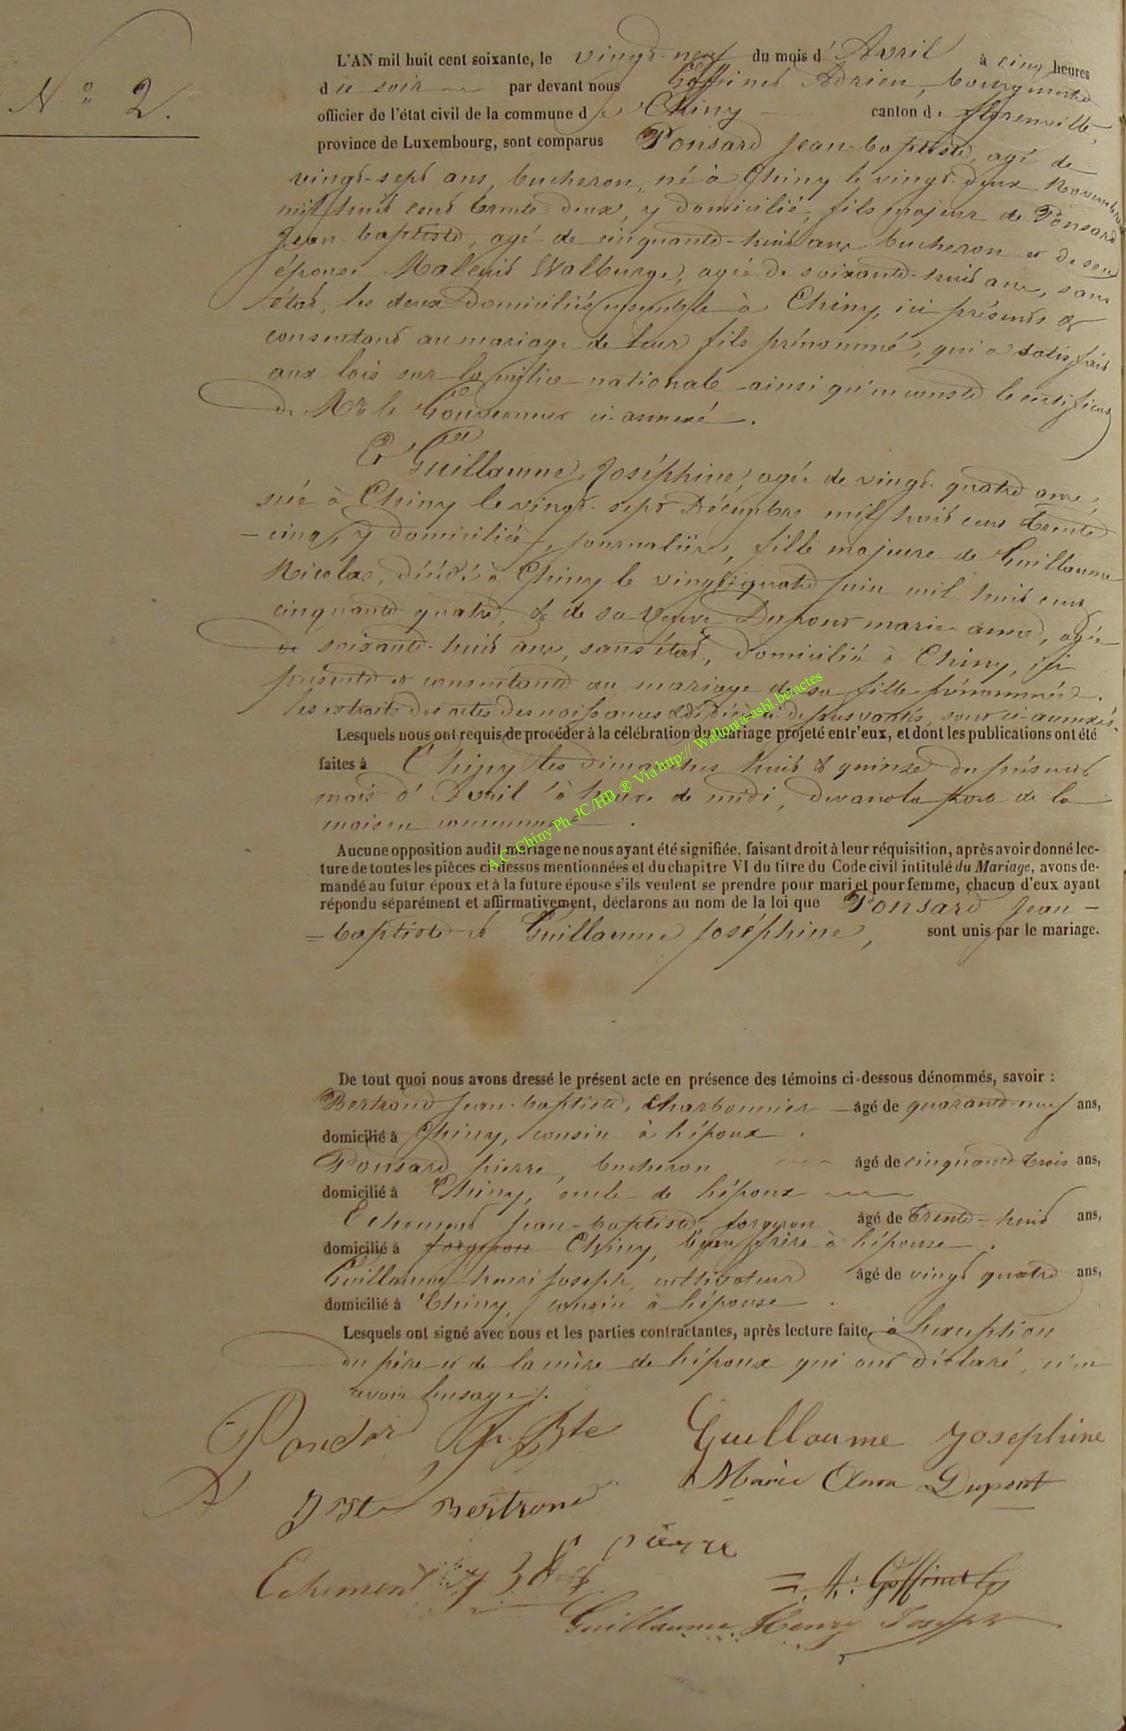 N° 2.
L'AN mil huit cent soixante, le vingt-neuf du mois d'Avril à cinq heures
du soir par devant nous Goffinet Adrien, bourgmestre
officier de l'état civil de la commune de Chiny canton de florenville,
province de Luxembourg, sont comparus Ponsard Jean-baptiste, agé de
vingt-sept ans, bucheron, né à Chiny le vingt-deux Novembre
mil huit cent trente-deux, y domicilié, fils majeur de Ponsard
Jean-baptiste, agé de cinquante-huit ans bucheron et de son
épouse Walburge, agée de soixante-huit ans, sans
état, les deux domiciliés ensemble à Chiny, ici présents &
consentant au mariage de leur fils prénommé, qui a satisfait
aux lois sur la milice nationale ainsi qu'en conste le certificat
de Mr le Gouverneur ci-annexé.
Et Guillaume Joséphine, agée de vingt-quatre ans,
née à Chiny le vingt-sept Décembre mil huit cent trente
-cinq, y domiciliée, journalière, fille majeure de Guillaume
Nicolas, décédé à Chiny le vingt quatre juin mil huit cent
cinquante quatre, & de sa veuve Dupont marie anne, agée
de soixante-huit ans, sans état, domiciliée à Chiny, ici
présente et consentante au mariage de sa fille prénommée.
les extraits des actes des naissances & de décès ci-dessus vantés, sont ci-annexés.
Lesquels nous ont requis de procéder à la célébration du mariage projeté entr'eux, et dont les publications ont été
faites à Chiny les dimanches huit & quinze du présent
mois d'Avril à heure de midi, devant la porte de la
maison commune.
Aucune opposition audit mariage ne nous ayant été signifiée, faisant droit à leur réquisition, après avoir donné lec-
ture de toutes les pièces ci-dessus mentionnées et du chapitre VI du titre du Code civil intitulé du Mariage, avons de-
mandé au futur époux et à la future épouse s'ils veulent se prendre pour mari et pour femme, chacun d'eux ayant
répondu séparément et affirmativement, déclarons au nom de la loi que Ponsard Jean-
=baptiste et Guillaume Joséphine, sont unis par le mariage.
De tout quoi nous avons dressé le présent acte en présence des témoins ci-dessous dénommés, savoir :
Bertrand Jean-baptiste, charbonnier âgé de quarante-neuf ans,
domicilié à Chiny, cousin à l'époux.
Ponsard pierre, bucheron âgé de cinquante trois ans,
domicilié à Chiny, oncle de l'époux
Echement Jean-baptiste, forgeron âgé de trente-huit ans,
domicilié à forgeron Chiny, beau frère à l'épouse.
Guillaume henri Joseph, cultivateur âgé de vingt quatre ans,
domicilié à Chiny, cousin à l'épouse.
Lesquels ont signé avec nous et les parties contractantes, après lecture faite, à l'exception
du père et de la mère de l'époux qui ont déclaré n'en
avoir l'usage.
Ponsard J. Bte Guillaume Josephine
Marie Anna Dupont
J Bte Bertrand
P pierre
Echement J B
= A. Goffinet
Guillaume Henry Joseph
A.C. Chiny Ph-JC/HB ® Via http:// Wallonia-asbl.be/actes